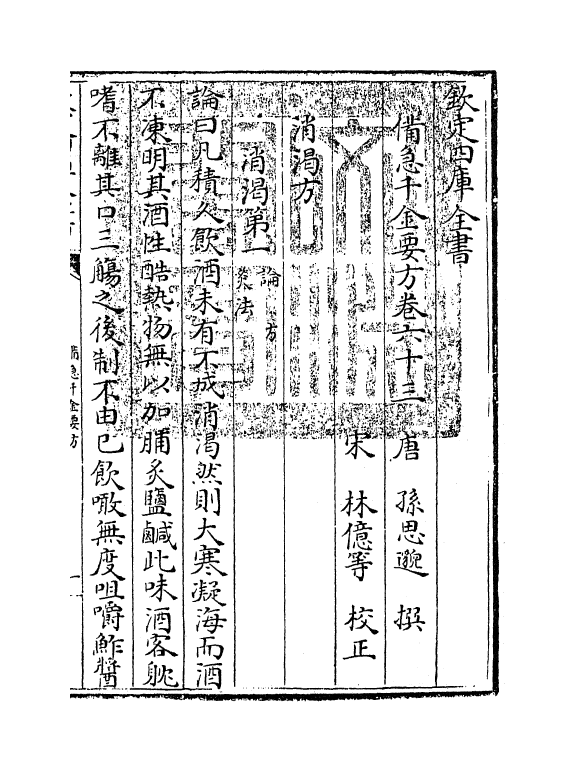 欽定四庫全書
備急千金要方卷六十三
唐 孫思邈 撰
宋 林億等 校正
消渇方
消渇第一 論 方 灸法
論曰凡積久飲酒未有不成消渇然則大寒凝海而酒
不凍明其酒性酷熱物無以加脯炙鹽鹹此味酒客躭
嗜不離其口三觴之後制不由己飲噉無度咀嚼鮓醬
備急千金要方
一